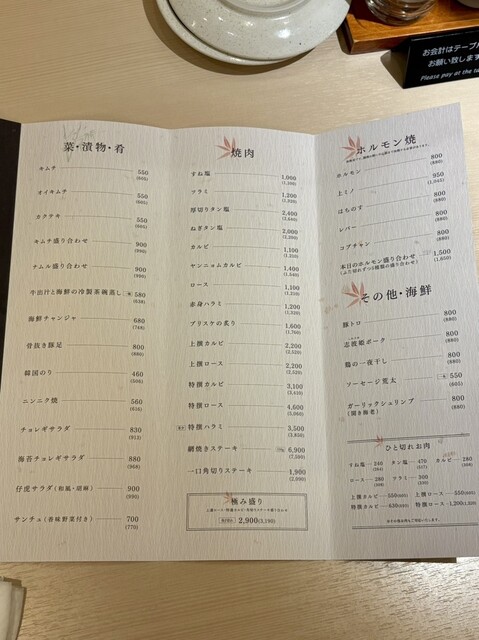 お会計はテーブル
お願い致します
Please pay at the ta
菜・漬物・肴
キムチ 550
(605)
オイキムチ 550
(605)
カクテキ 550
(605)
キムチ盛り合わせ 900
(990)
ナムル盛り合わせ 900
(990)
牛出汁と海鮮の冷製茶碗蒸し 580
(638)
海鮮チャンジャ 680
(748)
骨抜き豚足 800
(880)
韓国のり 460
(506)
ニンニク焼 560
(616)
チョレギサラダ 830
(913)
海苔チョレギサラダ 880
(968)
仔虎サラダ(和風・胡麻) 900
(990)
サンチュ(香味野菜付き) 700
(770)
焼肉
すね塩 1,000
(1,100)
ツラミ 1,200
(1,320)
厚切りタン塩 2,400
(2,640)
ねぎタン塩 2,000
(2,200)
カルビ 1,100
(1,210)
ヤンニョムカルビ 1,400
(1,540)
ロース 1,100
(1,210)
赤身ハラミ 1,200
(1,320)
ブリスケの炙り 1,600
(1,760)
上撰カルビ 2,200
(2,520)
上撰ロース 2,200
(2,520)
特撰カルビ 3,100
(3,410)
特撰ロース 4,600
(5,060)
特撰ハラミ 3,500
(3,850)
網焼きステーキ 6,900
(7,590)
一口角切りステーキ 1,900
(2,090)
極み盛り
2,900(3,190)
ホルモン焼
ホルモン 800
(880)
上ミノ 950
(1,045)
はちのす 800
(880)
レバー 800
(880)
コプチャン 800
(880)
本日のホルモン盛り合わせ 1,500
(ふた切れずつ5種類の盛り合わせ) (1,650)
その他・海鮮
豚トロ 800
(880)
志波姫ポーク 800
(880)
鶏の一夜干し 800
(880)
ソーセージ荒太 550
(605)
ガーリックシュリンプ 800
(開き海老) (880)
ひと切れお肉
すね塩 240 タン塩 470 カルビ 280
(264) (517) (308)
ロース 280 ツラミ 300
(308) (330)
上撰カルビ 550(605) 上撰ロース 550(605)
特撰カルビ 特撰ロース 1,200(1,320)